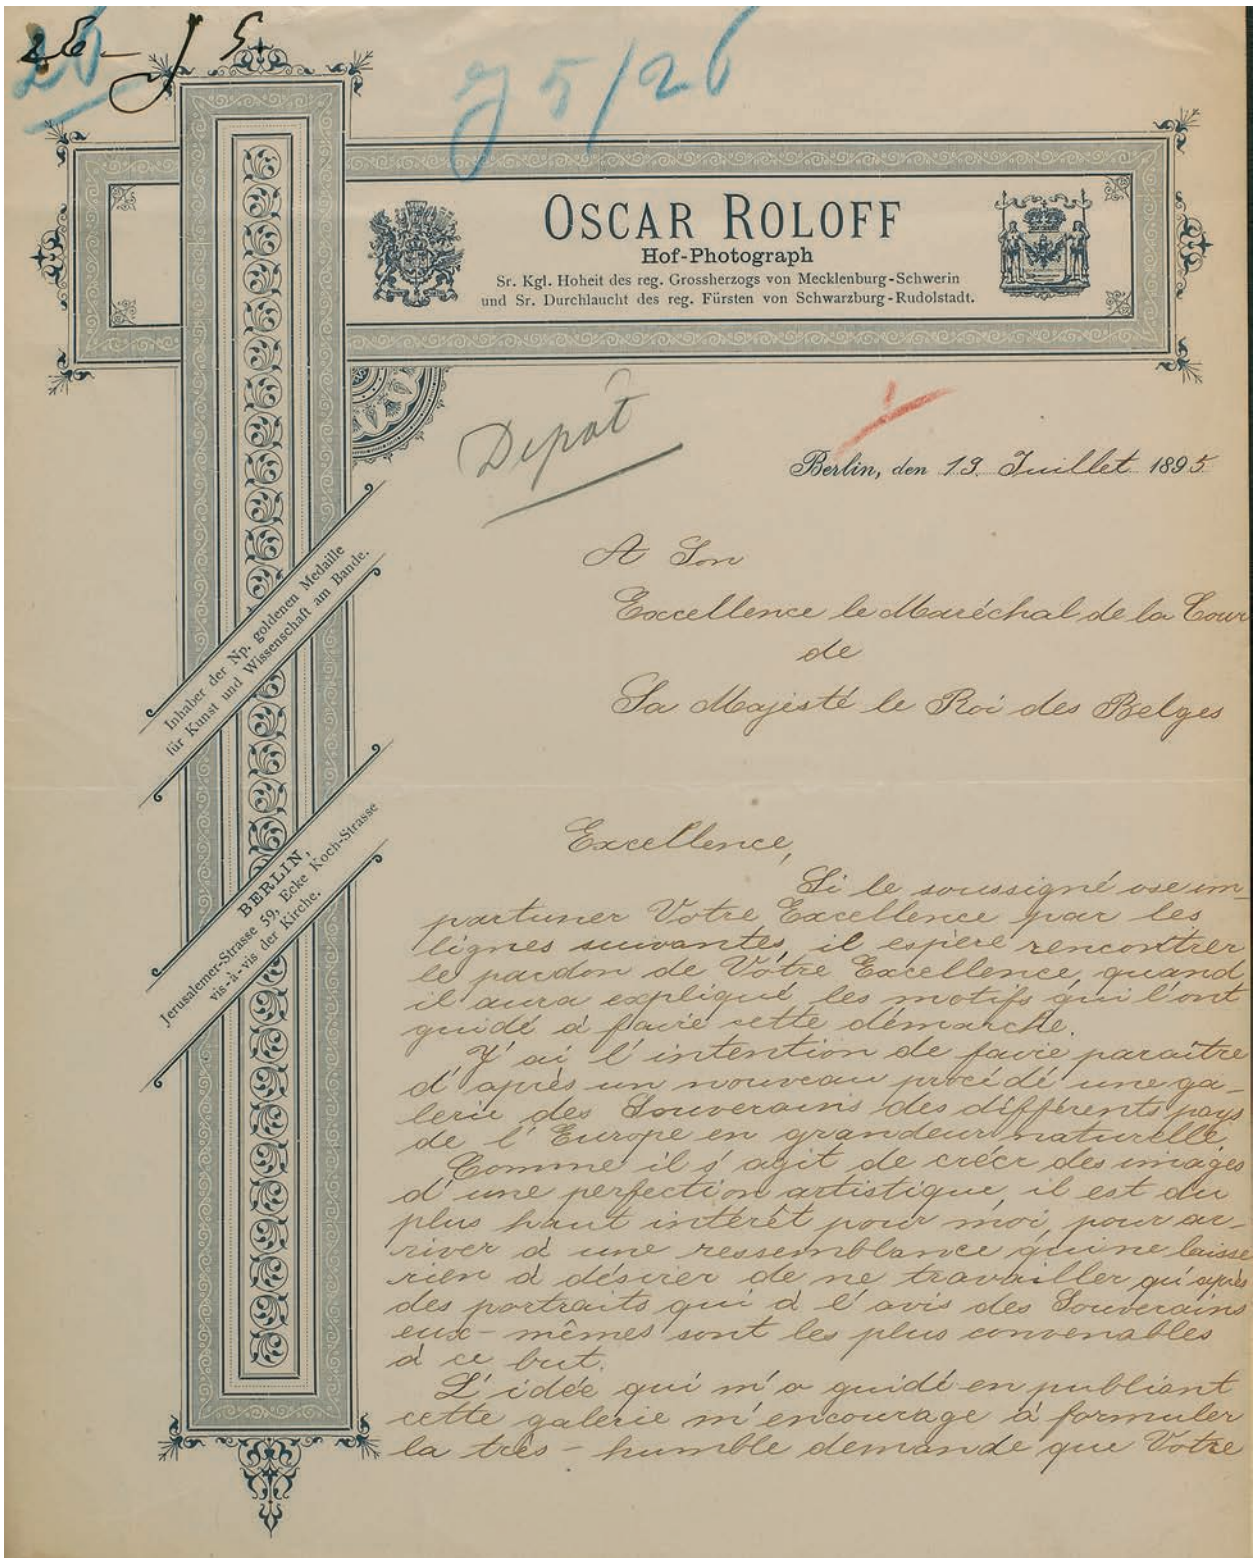 J 5/26
OSCAR ROLOFF
Hof-Photograph
Sr. Kgl. Hoheit des reg. Grossherzogs von Mecklenburg-Schwerin
und Sr. Durchlaucht des reg. Fürsten von Schwarzburg-Rudolstadt.
Depôt
Berlin, den 19. Juillet 1895
Inhaber der Np. goldenen Medaille
für Kunst und Wissenschaft am Bande.
BERLIN,
Jerusalemer-Strasse 59, Ecke Koch-Strasse
vis-à-vis der Kirche.
A Son
Excellence le Maréchal de la Cour
de
Sa Majesté le Roi des Belges
Excellence,
Si le soussigné ose im-
portuner Votre Excellence par les
lignes suivantes, il espère rencontrer
le pardon de Votre Excellence, quand
il aura expliqué les motifs qui l'ont
guidé à faire cette démarche.
J'ai l'intention de faire paraître
d'après un nouveau procédé une ga-
lerie des Souverains des différents pays
de l'Europe en grandeur naturelle.
Comme il s'agit de créer des images
d'une perfection artistique, il est du
plus haut intérêt pour moi, pour ar-
river à une ressemblance qui ne laisse
rien à désirer de ne travailler qu'après
des portraits qui à l'avis des Souverains
eux-mêmes sont les plus convenables
à ce but.
L'idée qui m'a guidé en publiant
cette galerie m'encourage à formuler
la très-humble demande que Votre